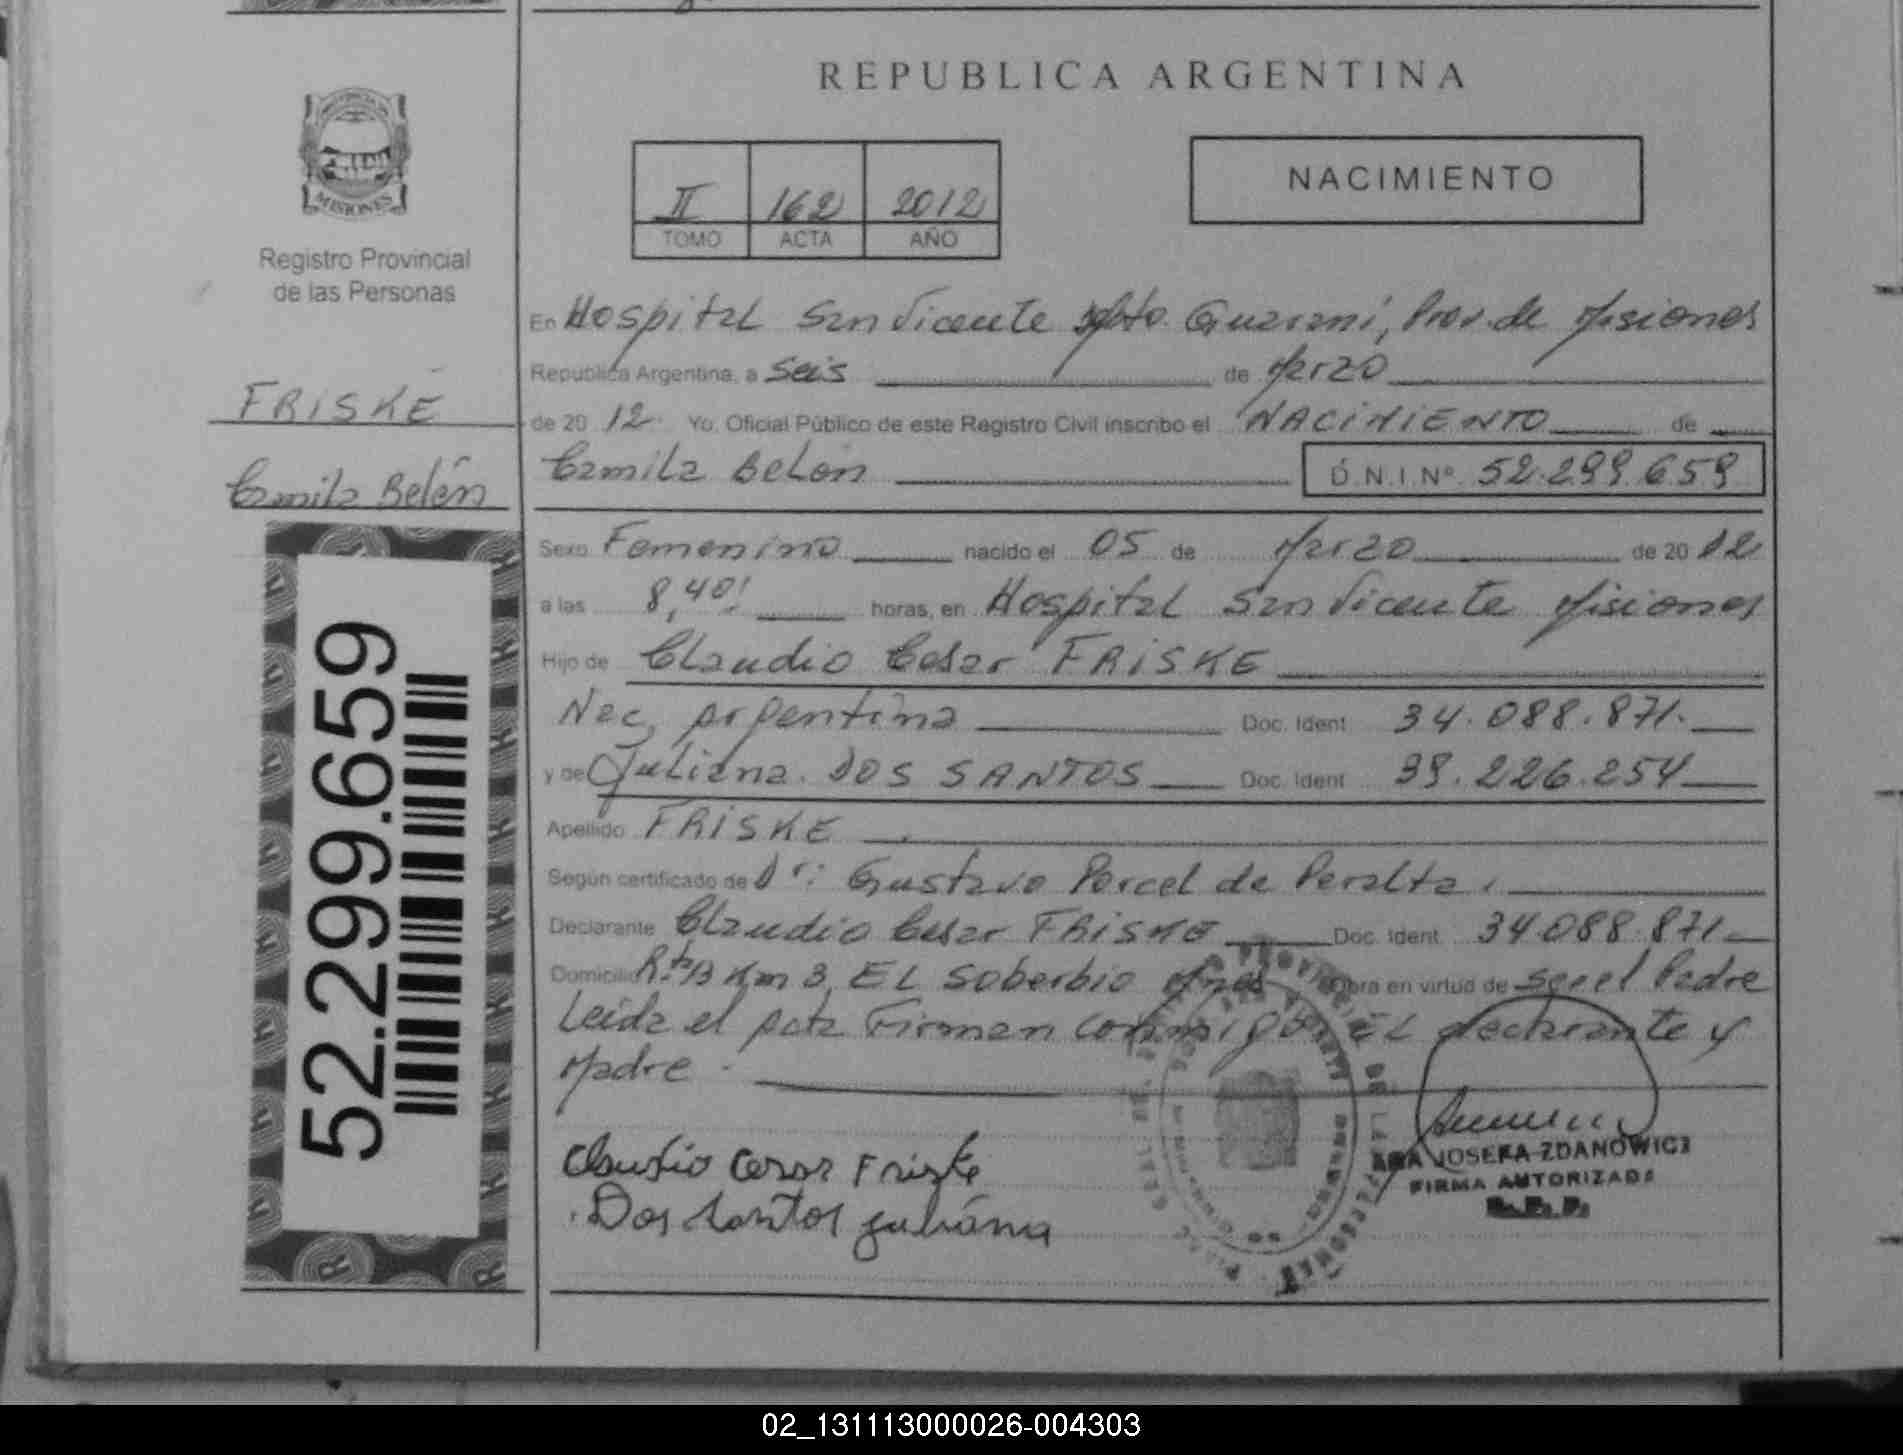 REPUBLICA ARGENTINA
PROVINCIA DE
MISIONES
Registro Provincial
de las Personas
FRISKE
Camila Belén
52.299.659
II 162 2012
TOMO ACTA AÑO
NACIMIENTO
En Hospital San Vicente Dpto. Guaraní, Prov. de Misiones
Republica Argentina, a seis de Marzo
de 20 12 Yo, Oficial Público de este Registro Civil inscribo el NACIMIENTO de
Camila Belén D.N.I.Nº 52.299.659
Sexo Femenino nacido el 05 de Marzo de 20 12
a las 8,40' horas, en Hospital San Vicente Misiones
Hijo de Claudio Cesar FRISKE
Nac. Argentina Doc. Ident 34.088.871.
y de Juliana DOS SANTOS Doc. Ident 39.226.254
Apellido FRISKE
Según certificado de Dr: Gustavo Porcel de Peralta.
Declarante Claudio Cesar FRISKE Doc. Ident. 34.088.871
Domicilio Km 3, EL Soberbio Mnes Obra en virtud de ser el Padre
Leída el Acta Firman conmigo EL declarante y
Madre.
Claudio Cesar Friske
Dos Santos Juliana
ANA JOSEFA ZDANOWICZ
FIRMA AUTORIZADA
R.P.P.
02_131113000026-004303